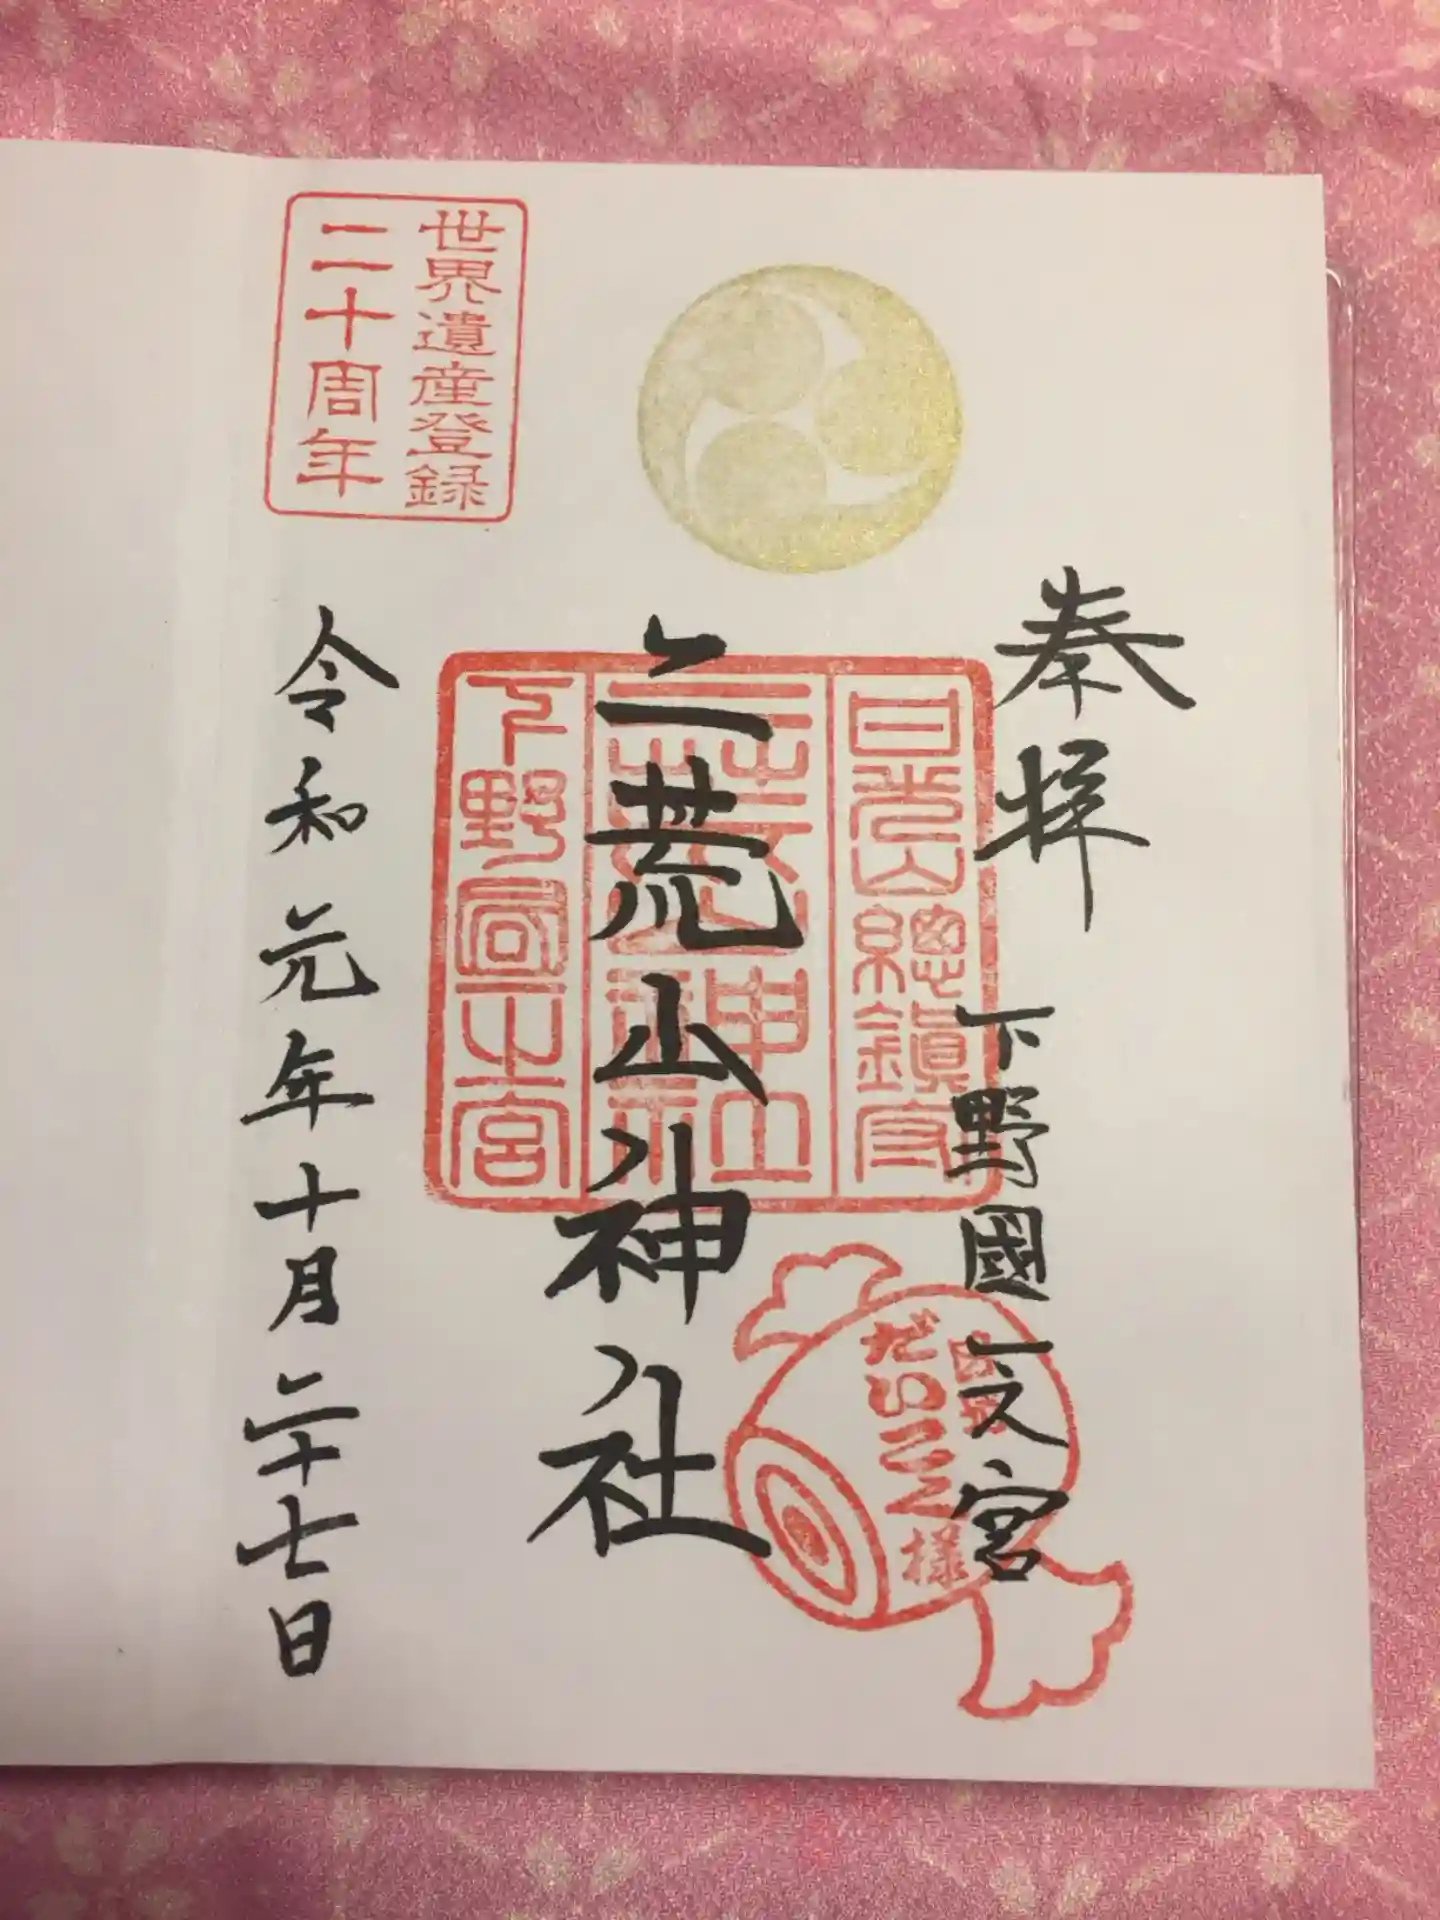 奉拝
下野國一之宮
二荒山神社
令和元年十月二十七日
世界遺産登録
二十周年
日光山總鎮守
二荒山神社
下野國一之宮
日光
だいこく様